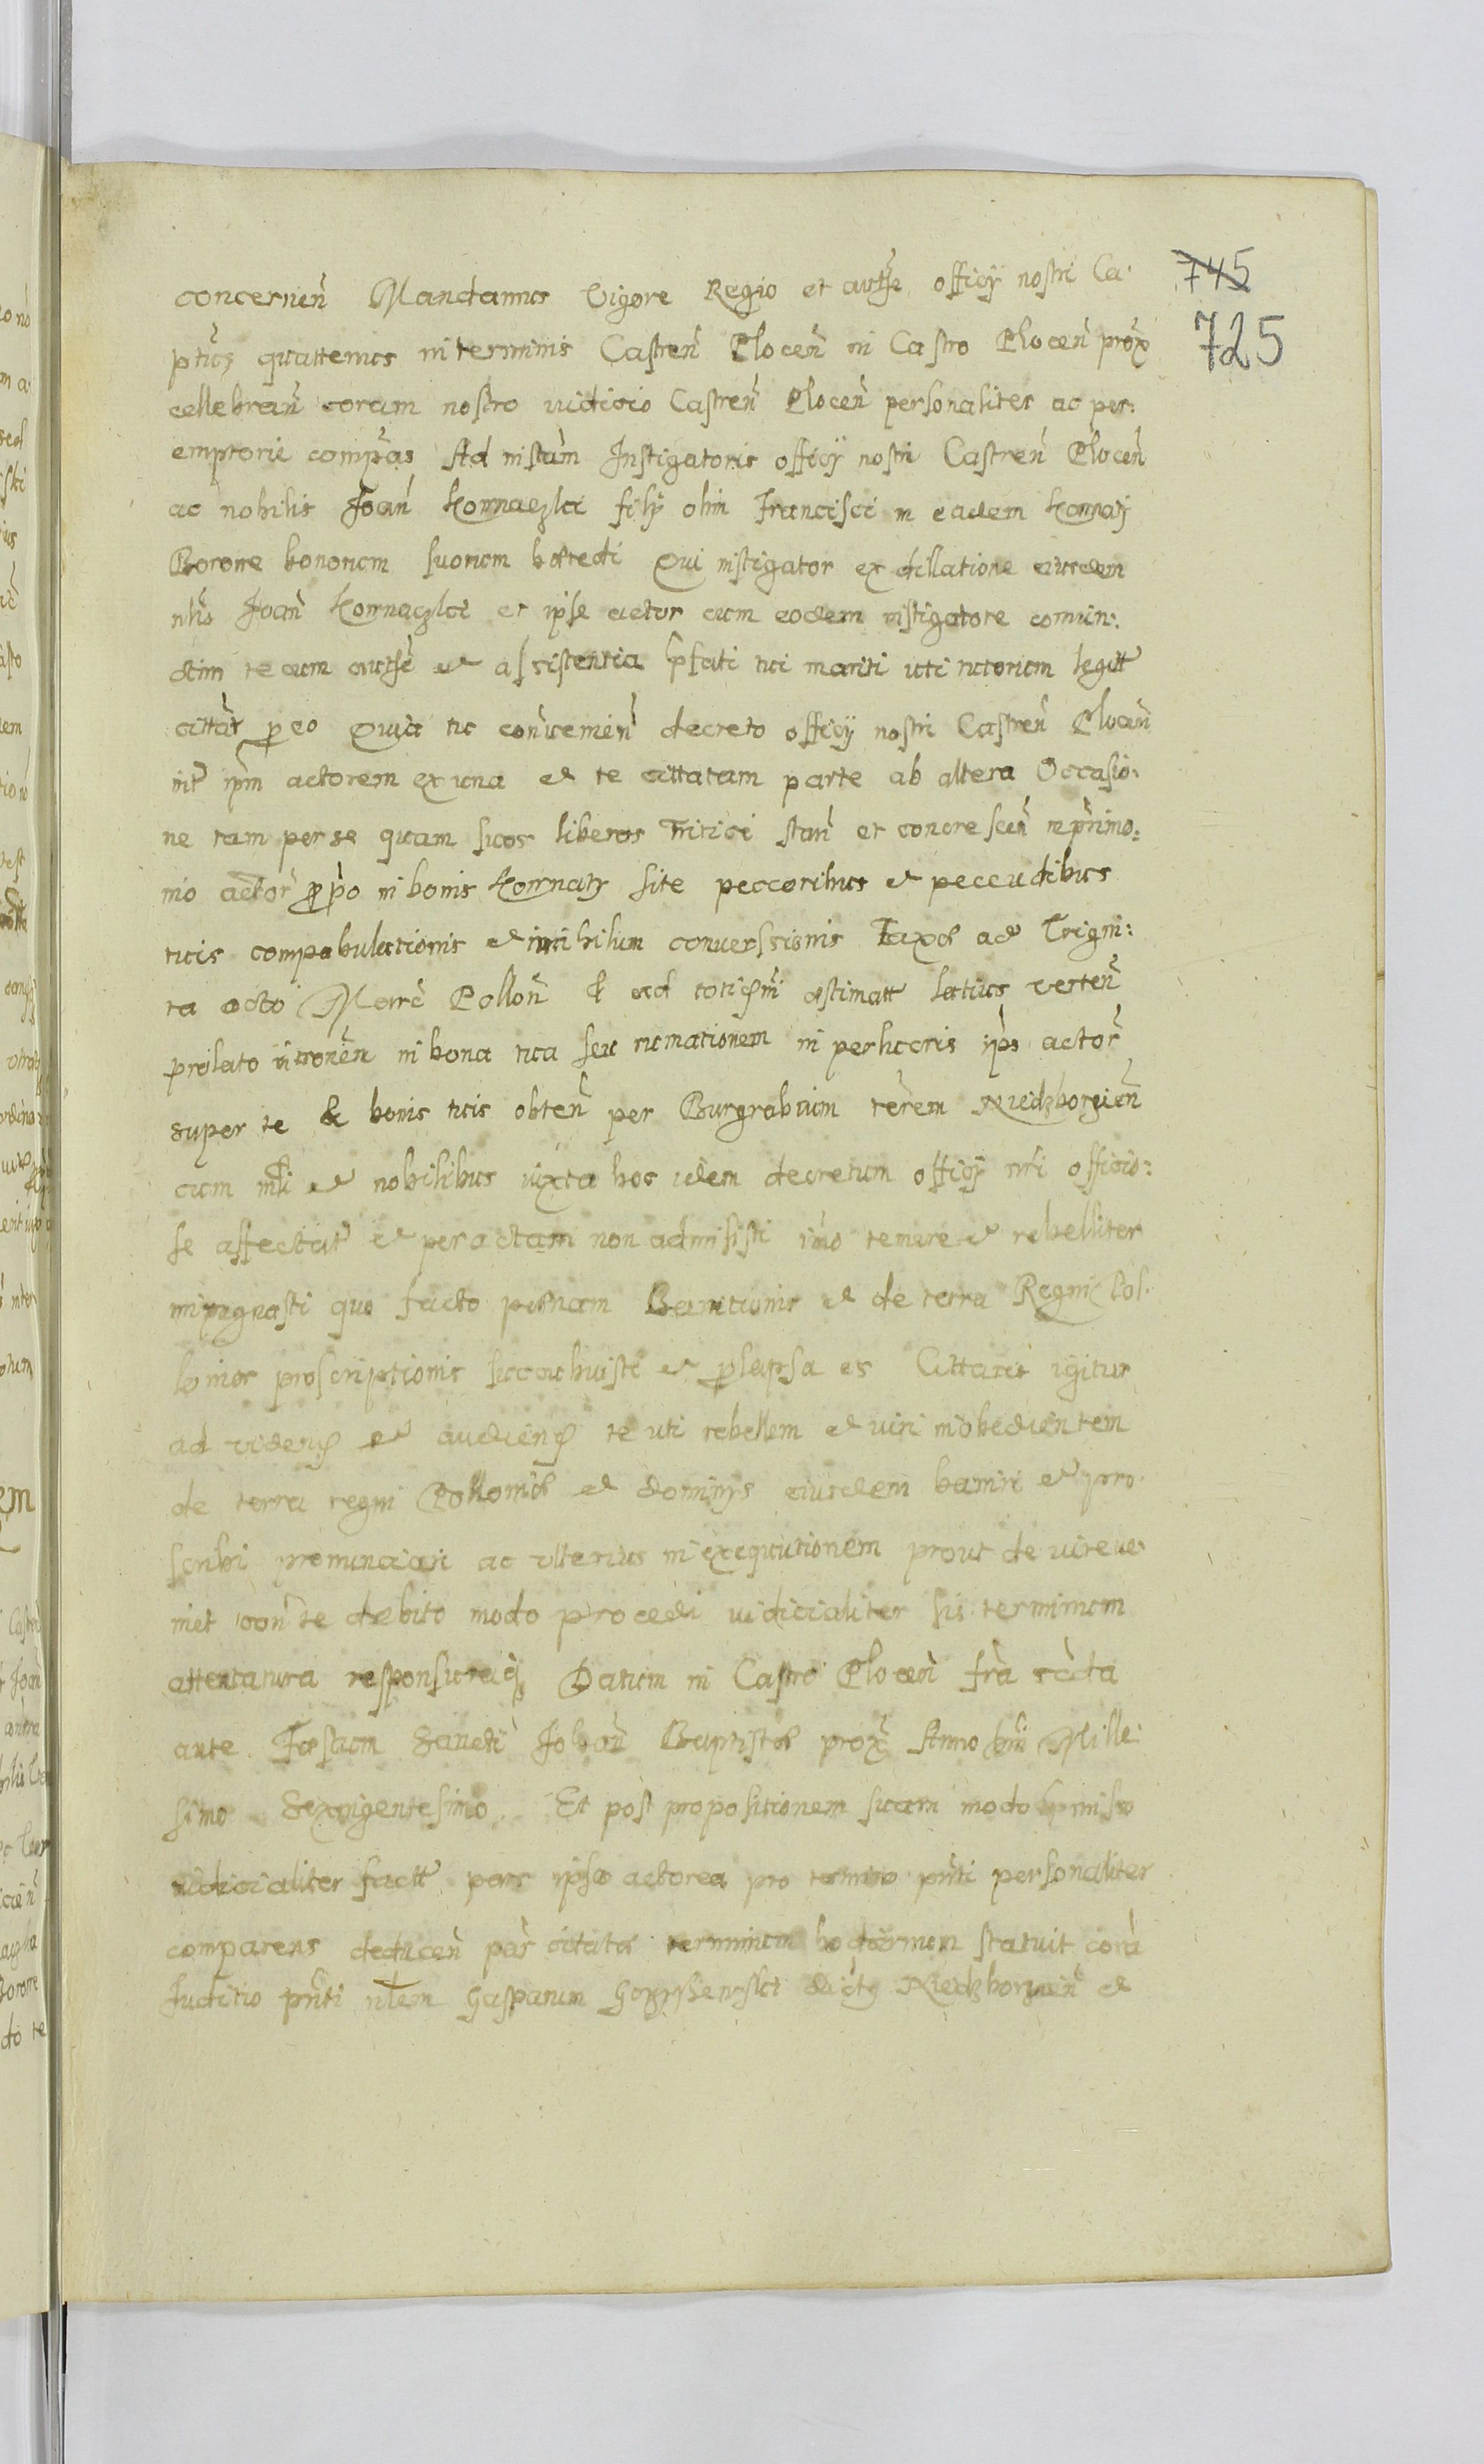 745
725
concernen̄ Mandamus Vigore Regio et autħe officÿ nostri Ca:
ptūs quattenus in terminis Castren̄ Plocen̄ in Castro Plocen̄ prox
cellebran̄ coram nostro iudicio Castren̄ Plocen̄ personaliter ac per:
emptorie compās Ad instan̄ Instigatoris officÿ nostri Castren̄ Plocen̄
ac nobilis Joan̄ Komaczki filÿ olim Francisci in eadem
Borone bonorum suorum hæredi Qui instigator ex dellatione eiusdem
nlis Joan̄ et ipse actor cum eodem instigatore coniun:
ctim te cum auth̄e et assistentia p̄fati tui mariti uti tutorum legitt
cittat̄ p eo Quia tu con̄uemen̄ decreto officÿ nostri Castren̄ Plocen̄
int̄ ip̄m actorem ex una et te cittatam parte ab altera Occasio:
ne tam per se quam suos liberos Tritici stan̄ et concrescen̄
actor̄ in bonis site peccoribus et peccudibus
tuis compabulationis et in nihilum conuerssionis Taxæ ad Trigin:
ta octo Marc̄ Pollon̄ & ad totidem æstimatt latius verten̄
prolato in bona tua seu in perlucris ip̄s actor̄
super te & bonis tuis obten̄ per Burgrabium ter̄em Niedzborzien̄
cum mli et nobilibus iuxta hoc idem decretum officÿ nri officio:
se affectat̄ et peractam non admisisti imo temere et rebelliter
impugnasti quo facto pænam Bannitionis et de terra Regni Pol:
loniæ proscriptionis succubuisti et plapsa es Cittaris igitur
ad videnđ et audienđ te uti rebellem et iuri inobedientem
de terra regni Polloniæ et dominÿs eiusdem banniri et pro:
scribi pronunciari ac ulterius in exequutionem prout de iure ue:
niet con̄ te debito modo procedi iudicialiter sis terminum
attentatura responsuraq̨ Datum in Castro Plocen̄ fr̄a sexta
ante Festum Sancti Johan̄ Baptistæ prox̄ Anno Dni Mille:
simo Sexcigentesimo Et post propositionem suam modo p̄misso
iudicialiter factt pars ipsa actorea pro termino pnti personaliter
comparens deducen̄ par̄ citatæ terminum hodiernum statuit corā
Juditio pnti nlem Gasparum Niedzborzien̄ et